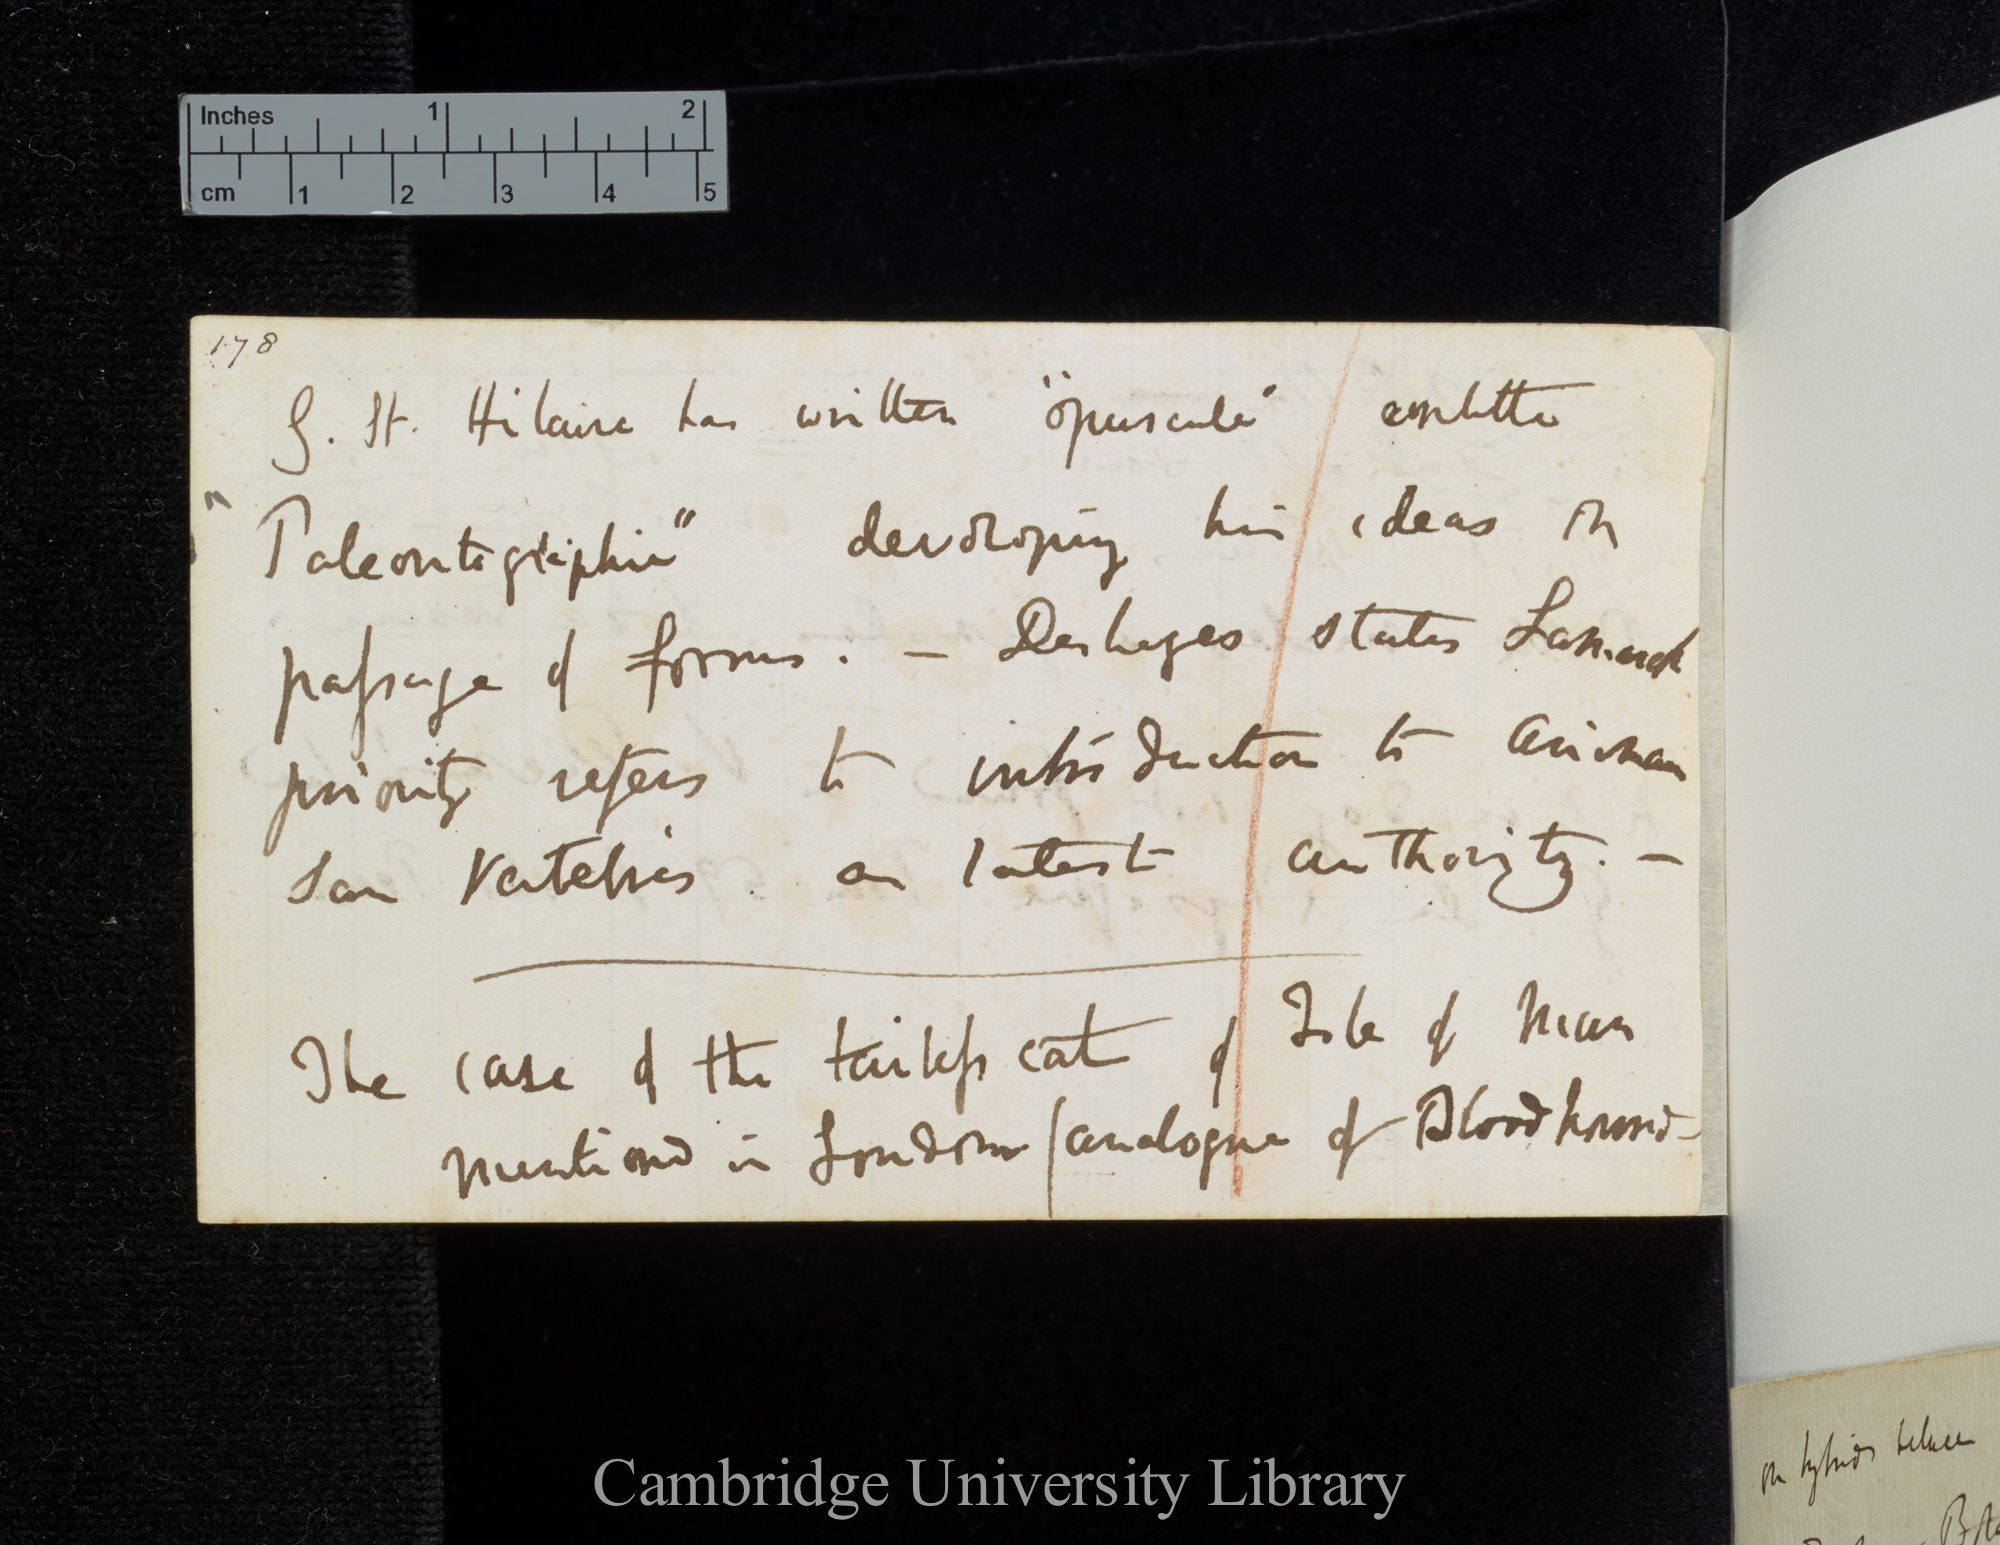 Inches 1 2
cm 1 2 3 4 5
178
G. St. Hilaire has written "opuscule" entitled
"Paleontographie" developing his ideas on
passage of forms. — Deshayes states Lamarck
priority refers to introduction to animaux
San Vertebres as latest authority. —
The case of the tailless cat of Isle of Man
mentioned in Loudon (analogue of Blood hound
on hybrids between
Cambridge University Library